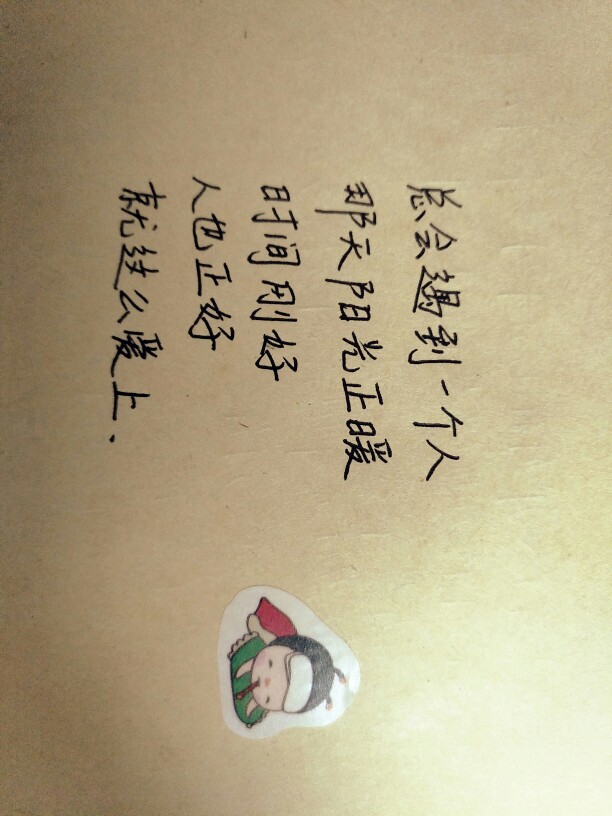 总会遇到一个人
那天阳光正暖
时间刚好
人也正好
就这么爱上、